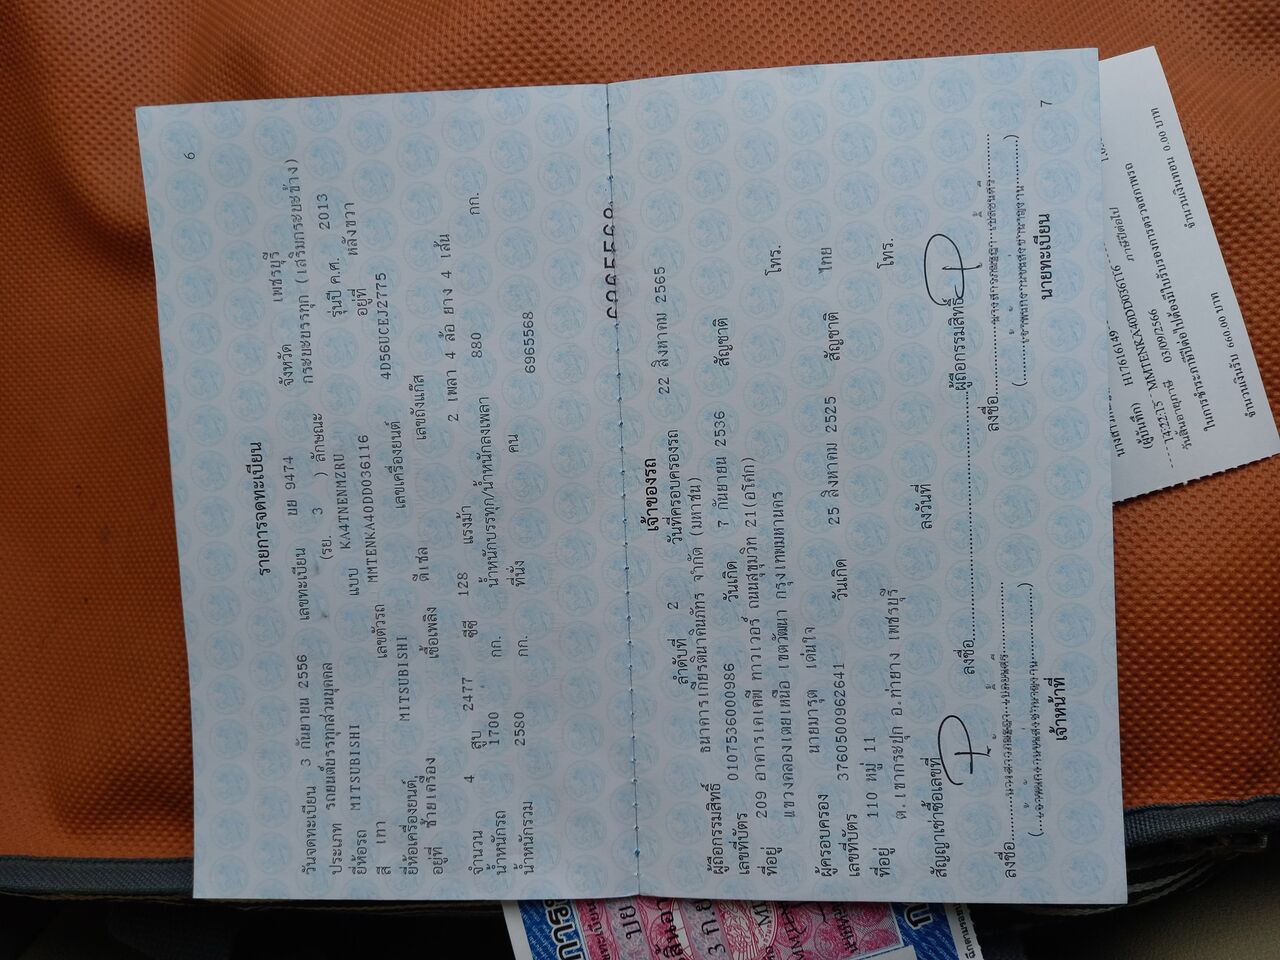 6
รายการจดทะเบียน
วันจดทะเบียน 3 กันยายน 2556 เลขทะเบียน บย 9474 จังหวัด เพชรบุรี
ประเภท รถยนต์บรรทุกส่วนบุคคล (รย. 3 ) ลักษณะ กระบะบรรทุก (เสริมกระบะข้าง)
ยี่ห้อรถ MITSUBISHI แบบ KA4TNENMZRU รุ่นปี ค.ศ. 2013
สี เทา เลขตัวรถ MMTENKA40DD036116 อยู่ที่ หลังขวา
ยี่ห้อเครื่องยนต์ MITSUBISHI เลขเครื่องยนต์ 4D56UCEJ2775
อยู่ที่ ซ้ายเครื่อง เชื้อเพลิง ดีเซล เลขถังแก๊ส
จำนวน 4 สูบ 2477 ซีซี 128 แรงม้า 2 เพลา 4 ล้อ ยาง 4 เส้น
น้ำหนักรถ 1700 กก. น้ำหนักบรรทุก/น้ำหนักลงเพลา 880 กก.
น้ำหนักรวม 2580 กก. ที่นั่ง คน 6965568
เจ้าของรถ
ลำดับที่ 2 วันที่ครอบครองรถ 22 สิงหาคม 2565
ผู้ถือกรรมสิทธิ์ ธนาคารเกียรตินาคินภัทร จำกัด (มหาชน)
เลขที่บัตร 0107536000986 วันเกิด 7 กันยายน 2536 สัญชาติ
ที่อยู่ 209 อาคารเคเคพี ทาวเวอร์ ถนนสุขุมวิท 21(อโศก)
แขวงคลองเตยเหนือ เขตวัฒนา กรุงเทพมหานคร โทร.
ผู้ครอบครอง นายมารุต เด่นใจ
เลขที่บัตร 3760500962641 วันเกิด 25 สิงหาคม 2525 สัญชาติ ไทย
ที่อยู่ 110 หมู่ 11
ต.เขากระปุก อ.ท่ายาง เพชรบุรี โทร.
สัญญาเช่าซื้อเลขที่ ลงวันที่
ลงชื่อ ผู้ถือกรรมสิทธิ์
ลงชื่อ ลงชื่อ
เจ้าหน้าที่ นายทะเบียน
7
(ผู้บันทึก) H17616149 ภาษีปีต่อไป
14:22:15 MMTENKA40DD036116
วันสิ้นอายุภาษี 03/09/2566
ในการชำระภาษีปีต่อไปต้องมีใบรับรองการตรวจสภาพรถ
จำนวนเงินรับ 660.00 บาท จำนวนเงินทอน 0.00 บาท